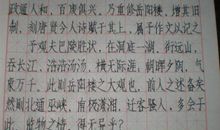 政通人和，百废俱兴，乃重修岳阳楼，增其旧
制，刻唐贤今人诗赋于其上，属予作文以记之
予观夫巴陵胜状，在洞庭一湖，衔远山，
吞长江，浩浩汤汤，横无际涯，朝晖夕阴，气
象万千，此则岳阳楼之大观也，前人之述备矣
然则北通巫峡，南极潇湘，迁客骚人，多会于
此，览物之情，得无异乎？